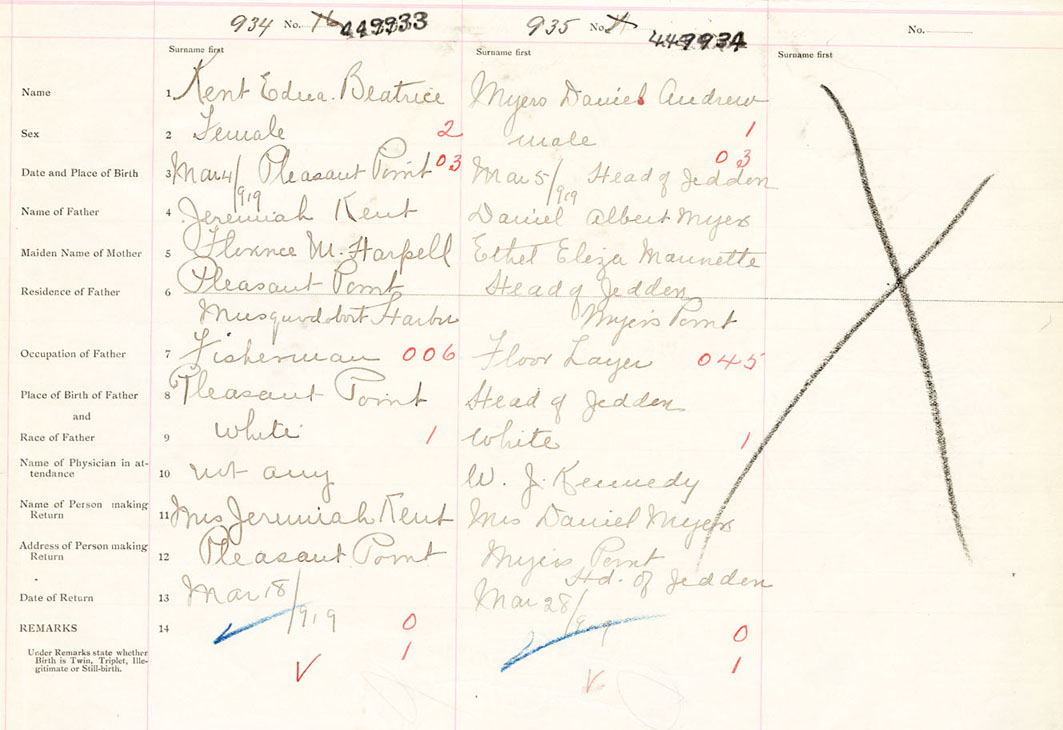 934 No. 449933 935 No. 449934 No.
Surname first Surname first Surname first
Name 1 Kent Edna. Beatrice Myers Daniel Andrew
Sex 2 Female 2 male 1
Date and Place of Birth 3 Mar 4/919 Pleasant Point 03 Mar 5/919 Head of Jeddon 03
Name of Father 4 Jeremiah Kent Daniel Albert Myers
Maiden Name of Mother 5 Florence M. Harpell Ethel Eliza Maunette
Residence of Father 6 Pleasant Point Head of Jeddon
Musquodobort Harbor Myers Point
Occupation of Father 7 Fisherman 006 Floor Layer 045
Place of Birth of Father 8 Pleasant Point Head of Jeddon
and
Race of Father 9 White 1 White 1
Name of Physician in at-
tendance 10 not any W. J. Kennedy
Name of Person making
Return 11 Mrs Jeremiah Kent Mrs Daniel Myers
Address of Person making
Return 12 Pleasant Point Myers Point
Hd. of Jeddon
Date of Return 13 Mar 18/919 Mar 28/919
REMARKS 14 0 0
Under Remarks state whether
Birth is Twin, Triplet, Ille-
gitimate or Still-birth. 1 1